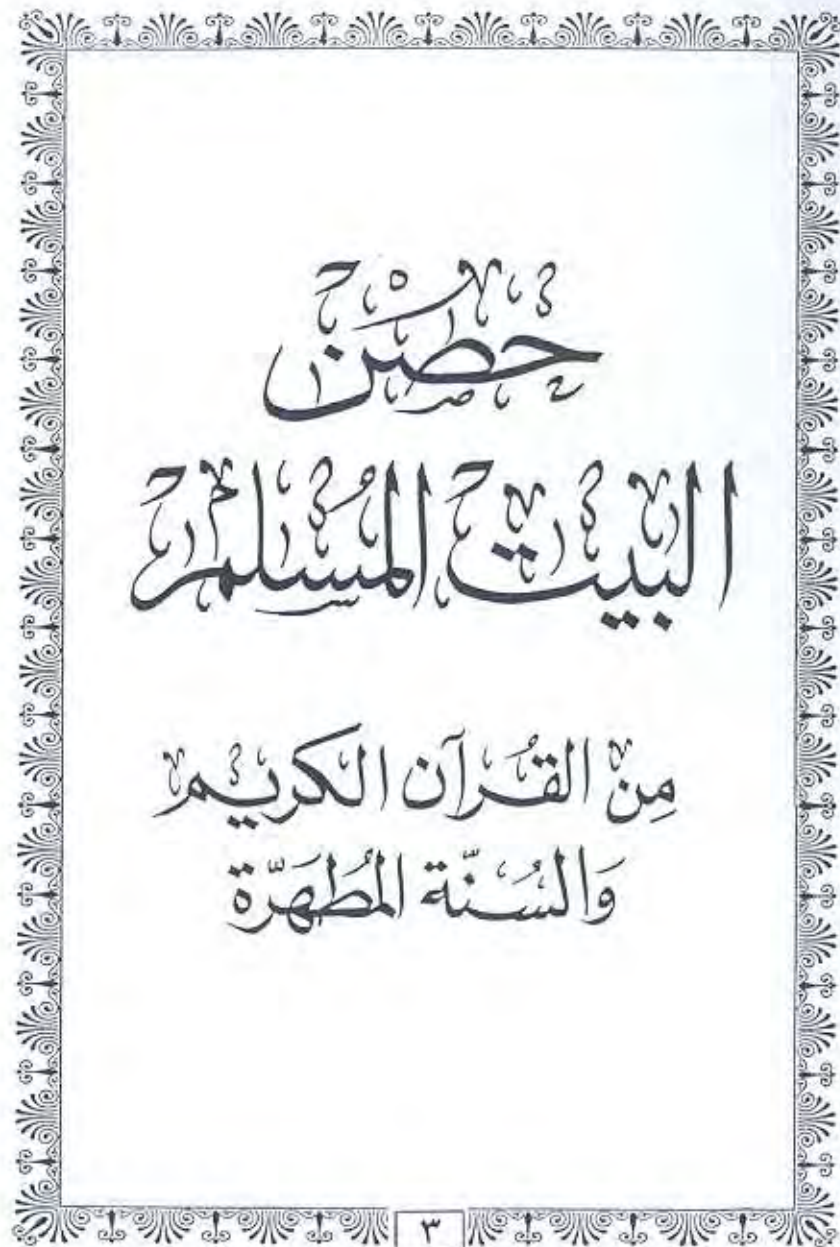 حصن
البيت المسلم
مِنَ القُرآن الكريم
وَالسُنّة المُطَهَرّة
٣